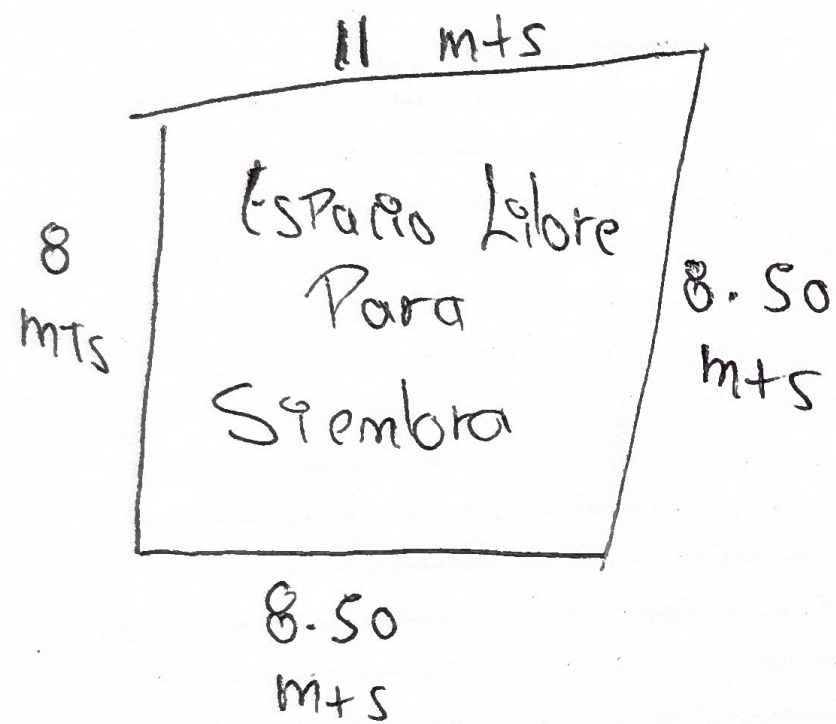 11 mts
Espacio Libre
Para
Siembra
8
mts
8.50
mts
8.50
mts